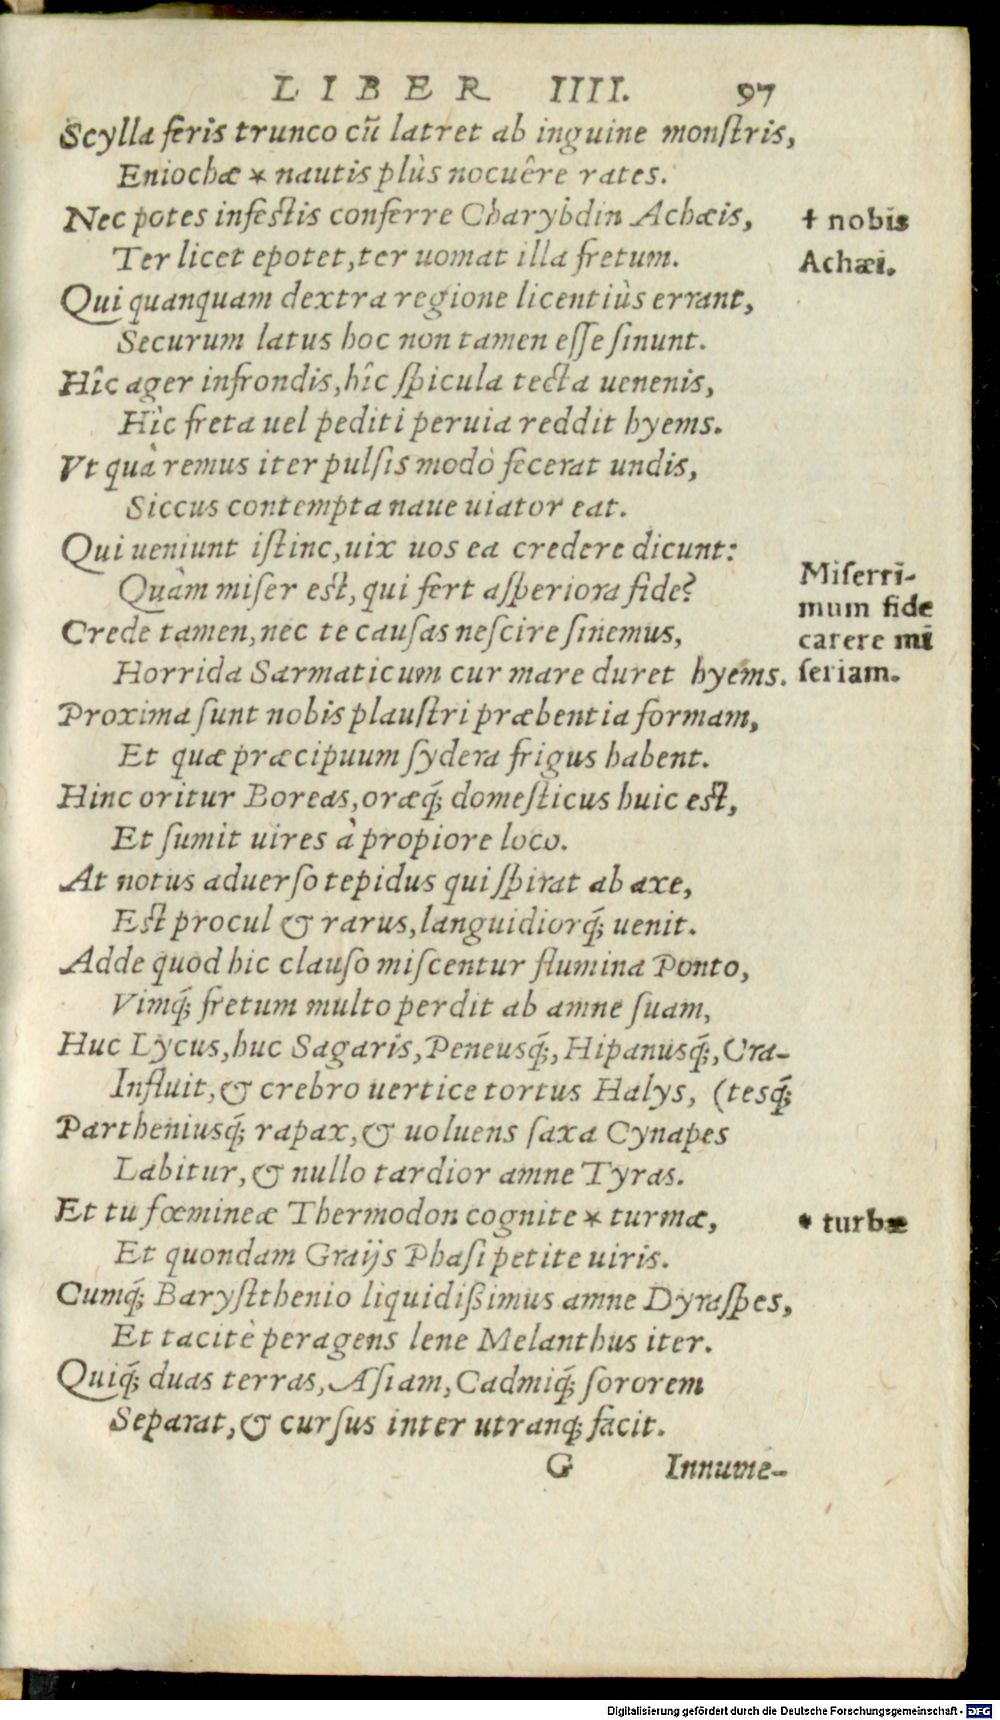 LIBER IIII. 97
Scylla feris trunco cũ latret ab inguine monſtris,
Eniochæ * nautis plùs nocuêre rates.
Nec potes infeſtis conferre Charybdin Achæis,
† nobis
Ter licet epotet, ter uomat illa fretum.
Achæi.
Qui quanquam dextra regione licentiùs errant,
Securum latus hoc non tamen eſſe ſinunt.
Hîc ager infrondis, hîc ſpicula tecta uenenis,
Hîc freta uel pediti peruia reddit hyems.
Vt quà remus iter pulſis modò fecerat undis,
Siccus contempta naue uiator eat.
Qui ueniunt iſtinc, uix uos ea credere dicunt:
Quàm miſer eſt, qui fert aſperiora fide?
Miſerri-
mum fide
carere mi
ſeriam.
Crede tamen, nec te cauſas neſcire ſinemus,
Horrida Sarmaticum cur mare duret hyems.
Proxima ſunt nobis plauſtri præbentia formam,
Et quæ præcipuum ſydera frigus habent.
Hinc oritur Boreas, oræq́; domeſticus huic eſt,
Et ſumit uires à propiore loco.
At notus aduerſo tepidus qui ſpirat ab axe,
Eſt procul & rarus, languidiorq́; uenit.
Adde quod hic clauſo miſcentur flumina Ponto,
Vimq́; fretum multo perdit ab amne ſuam,
Huc Lycus, huc Sagaris, Peneusq́;, Hipanusq́;, Cra-
Influit, & crebro uertice tortus Halys, (tesq́;
Partheniusq́; rapax, & uoluens ſaxa Cynapes
Labitur, & nullo tardior amne Tyras.
Et tu fœmineæ Thermodon cognite * turmæ,
* turbæ
Et quondam Graijs Phaſi petite uiris.
Cumq́; Baryſthenio liquidißimus amne Dyraſpes,
Et tacitè peragens lene Melanthus iter.
Quiq́; duas terras, Aſiam, Cadmiq́; ſororem
Separat, & curſus inter utranq; facit.
G Innume-
Digitalisierung gefördert durch die Deutsche Forschungsgemeinschaft - DFG